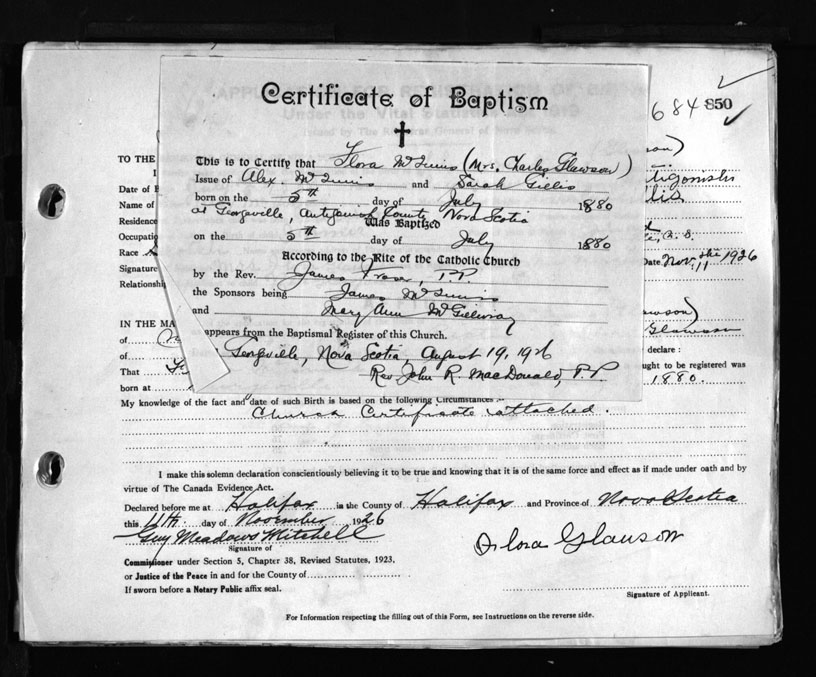 Certificate of Baptism
684 850
This is to Certify that Flora McInnis (Mrs. Charles Glawson)
Issue of Alex. McInnis and Sarah Gillis
born on the 5th day of July 1880
at Georgeville, Antigonish County Nova Scotia
Was Baptized
on the 5th day of July 1880
According to the Rite of the Catholic Church
by the Rev. James Fraser, P.P.
the Sponsors being James McInnis
and Mary Ann McGillivray
appears from the Baptismal Register of this Church.
Georgeville, Nova Scotia, August 19, 1926
Rev. John R. MacDonald, P.P.
TO THE
I
Date of B
Name of
Residence
Occupatio
Race
Signature
Relationsh
tigonish
llis
Date Nov. 11 the 1926
IN THE MA
of
of
That
born at
awson)
Glawson
declare :
ught to be registered was
1880.
My knowledge of the fact and date of such Birth is based on the following Circumstances :-
Church Certificate attached.
I make this solemn declaration conscientiously believing it to be true and knowing that it is of the same force and effect as if made under oath and by
virtue of The Canada Evidence Act.
Declared before me at Halifax in the County of Halifax and Province of Nova Scotia
this 11th. day of November 1926
Guy Meadows Mitchell
Signature of
Flora Glawson
Commissioner under Section 5, Chapter 38, Revised Statutes, 1923,
or Justice of the Peace in and for the County of
If sworn before a Notary Public affix seal.
Signature of Applicant.
For Information respecting the filling out of this Form, see Instructions on the reverse side.